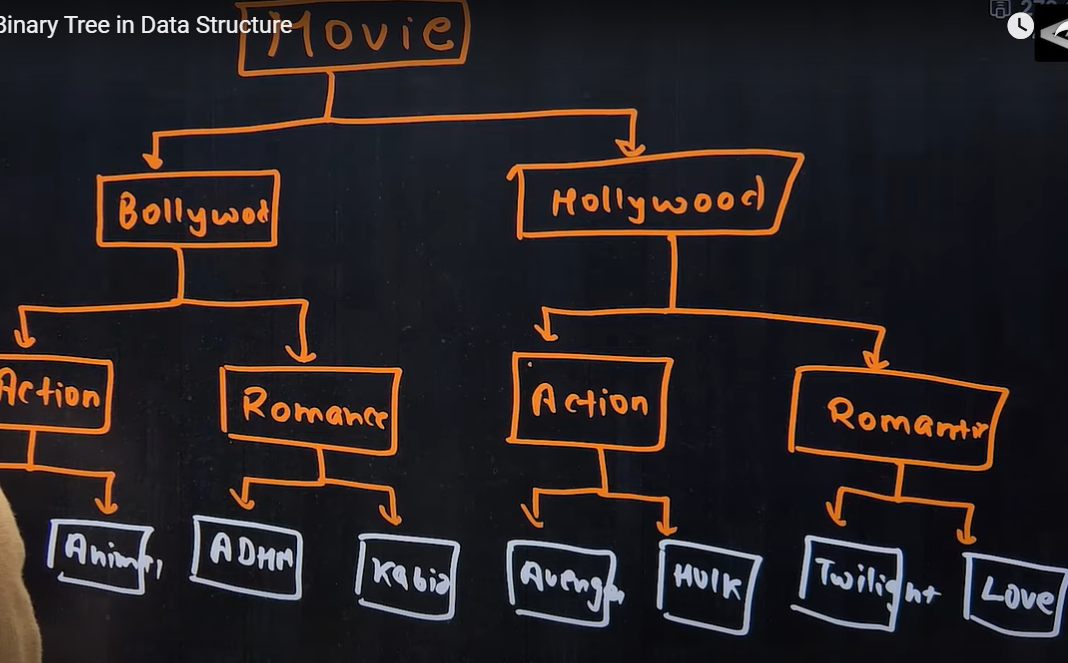 Binary Tree in Data Structure
Movie
Bollywood
Hollywood
Action
Romance
Action
Romantic
ADHM
Avenger
HULK
Twilight
Love